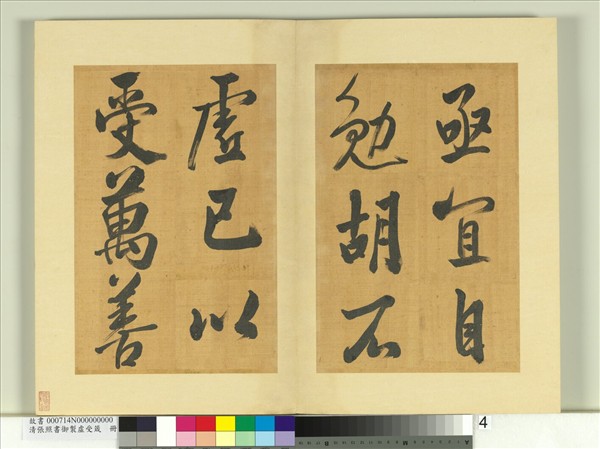 亟宜自
勉胡不
虛己以
受萬善
故書 000714N000000000
清張照書御製虛受箴 冊
4